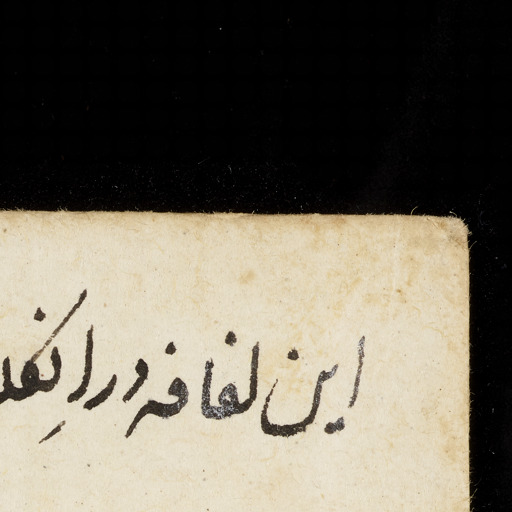 این لفافه در انگلند